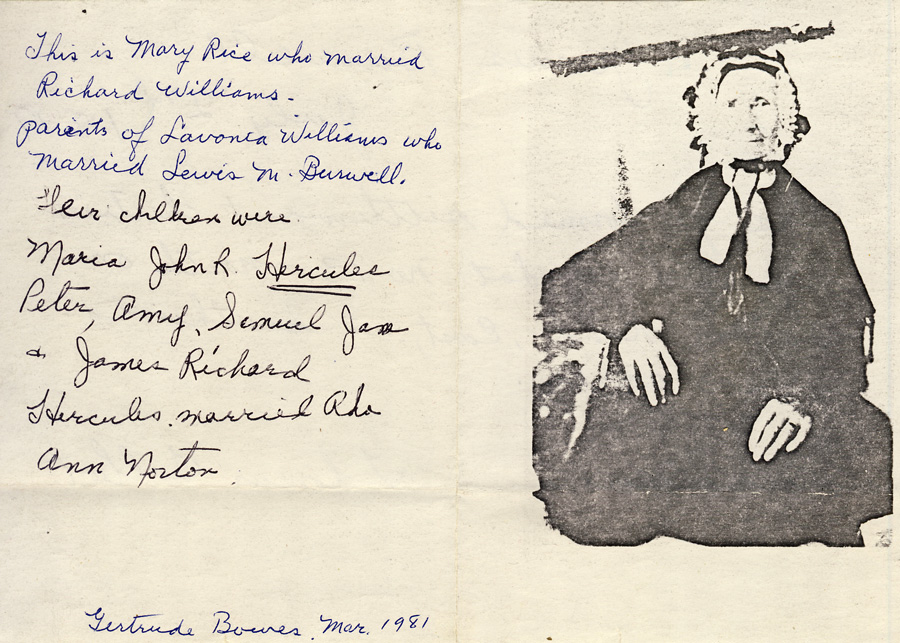 This is Mary Rice who married
Richard Williams.
parents of Lavonia Williams who
married Lewis M. Burwell.
Their children were
Maria John R. Hercules
Peter, Amy, Semuel Jane
& James Richard
Hercules married Rho
Ann Norton
Gertrude Bowes, Mar. 1981